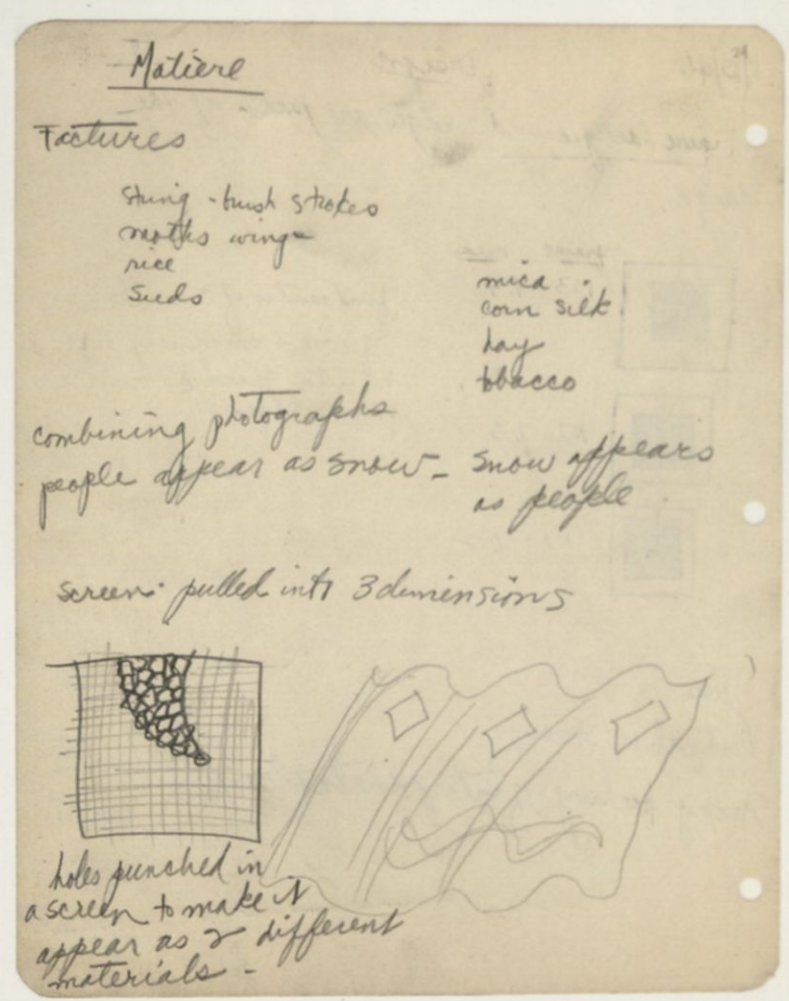 Matière
Factures
string - brush strokes
moths wing
rice
seeds
mica
corn silk
hay
tobacco
combining photographs
people appear as snow - snow appears
as people
screen. pulled into 3 dimensions
holes punched in
a screen to make it
appear as 2 different
materials -